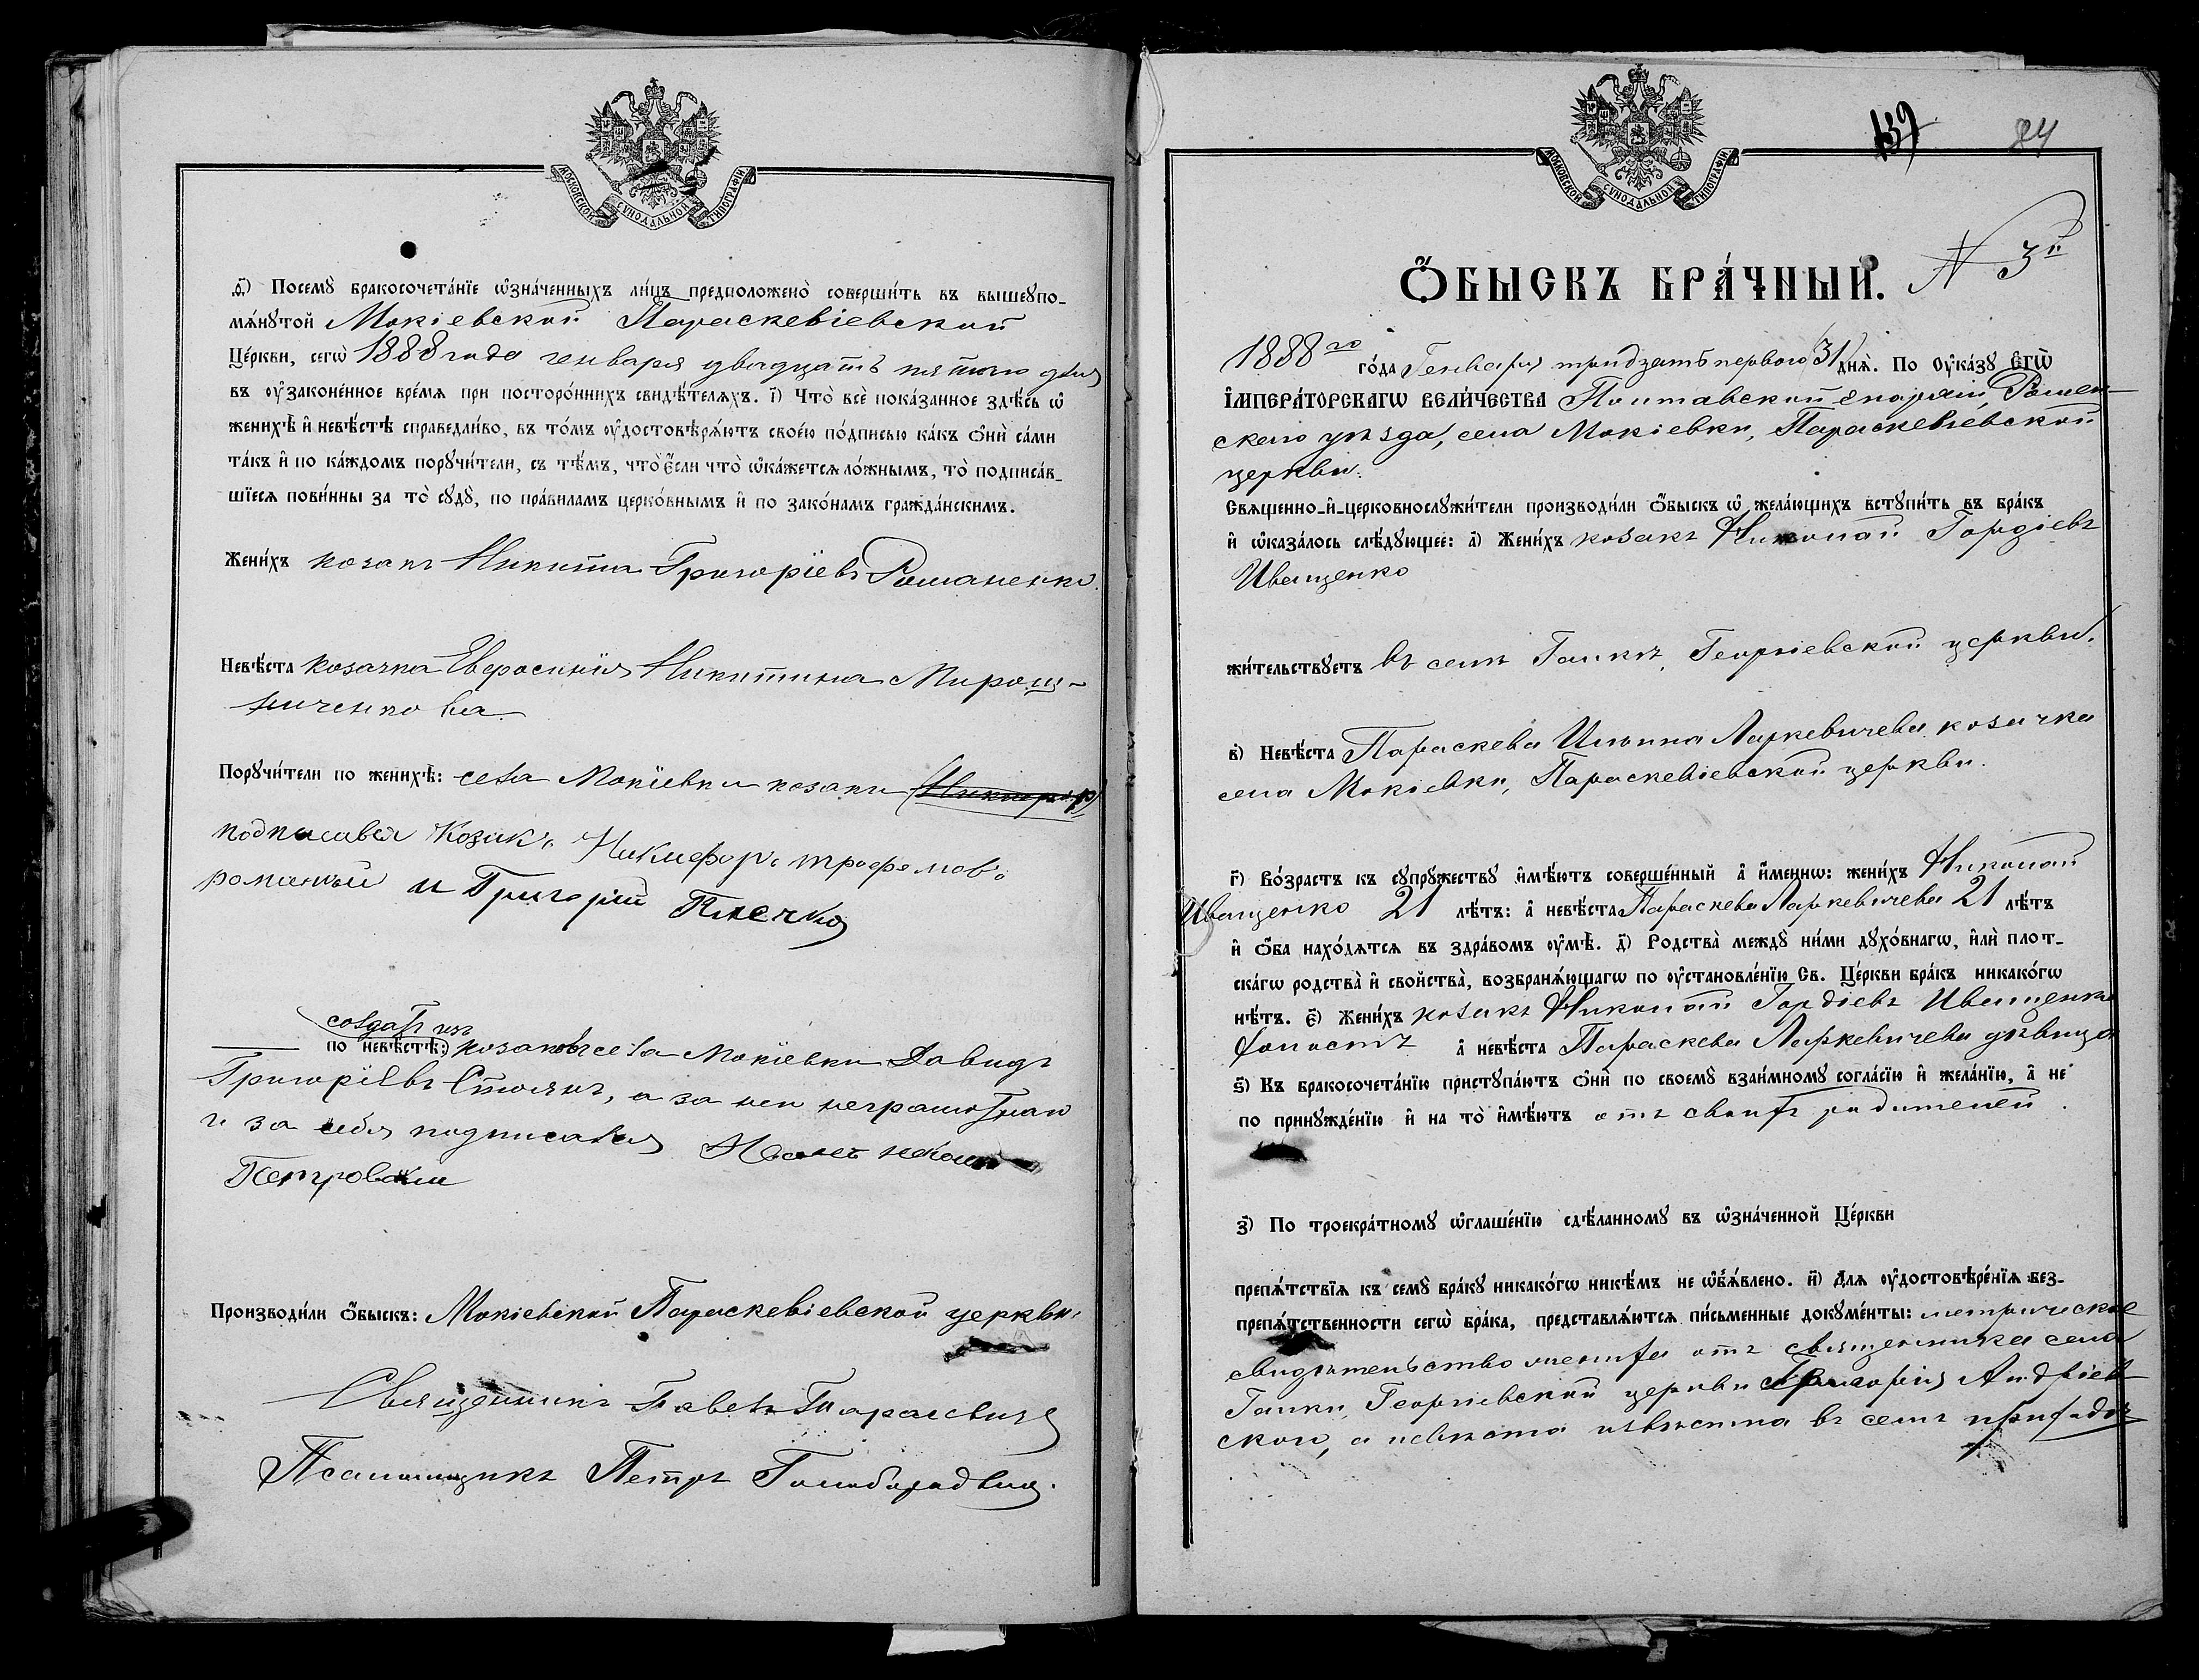 МОСКОВСКОЙ СѴНОДАЛЬНОЙ ТИПОГРАФІИ
д҃) Посемꙋ бракосочета́нїе ѡ҆зна́ченныхъ ли́цъ предположено̀ соверши́ть въ вышеꙋпо-
мѧ́нꙋтой Мокіевской Параскевіевской
Це́ркви, сегѡ̀ 1888 года генваря двадцать пятого дня
въ ѹ҆зако́ненное вре́мѧ при посторо́ннихъ свидѣ́телѧхъ. і҃) Что̀ всѐ пока́занное здѣ́сь ѡ҆
женихѣ̀ и҆ невѣ́стѣ справедли́во, въ то́мъ ѹ҆достовѣрѧ́ютъ свое́ю по́дписью ка́къ ѻ҆нѝ са́ми
та́къ и҆ по ка́ждомъ порꙋчи́тели, съ тѣ́мъ, что̀ є҆́сли что̀ ѡ҆ка́жетсѧ ло́жнымъ, то̀ подписа́в-
шїесѧ пови́нны за то̀ сꙋдꙋ̀, по пра́виламъ церко́внымъ и҆ по зако́намъ гражда́нскимъ.
Жени́хъ козакъ Никита Григоріевъ Романенко.
Невѣ́ста козачка Евфросинія Никитина Мирош-
ниченкова
Порꙋчи́тели по женихѣ̀: села Мокіевки козаки
подписався Козакъ Никифоръ трофемовъ
и Григорій Плечко
по невѣ́стѣ: козаковъ села Мокіевки Давидъ
Григоріевъ Стоянъ, а за неграмотнаго
и за себя подписався
Производи́ли ѻ҆́быскъ: Мокіевской Параскевіевской церкви
Священникъ Павелъ Тарасевичъ
Псаломщикъ Петръ
139 84
МОСКОВСКОЙ СѴНОДАЛЬНОЙ ТИПОГРАФІИ
№ 3й
Ѻ҆́БЫСКЪ БРА́ЧНЫЙ.
1888го го́да Генваря тридцать первого 31 днѧ̀. По ѹ҆ка́зꙋ Є҆гѡ̀
І҆мпера́торскагѡ вели́чества Полтавской епархіи, Ромен-
ского уѣзда, села Мокіевки, Параскевіевской
церкви.
Свѧщенно-и҆-церковнослꙋжи́тели производи́ли ѻ҆́быскъ ѡ҆ жела́ющихъ встꙋпи́ть въ бра́къ
и҆ ѡ҆каза́лось слѣ́дꙋющее: а҃) Жени́хъ козакъ Николай Гордіевъ
Иващенко
жи́тельствꙋетъ въ селѣ Галкѣ, Георгіевской церкви.
в҃) Невѣ́ста Параскева Ильина Ларкевичева козачка
села Мокіевки, Параскевіевской церкви.
г҃) Во́зрастъ къ сꙋпрꙋ́жествꙋ и҆мѣ́ютъ соверше́нный а҆ и҆́менно: жени́хъ Николай
Иващенко 21 лѣ́тъ: а҆ невѣ́ста Параскева Ларкевичева 21 лѣ́тъ
и҆ ѻ҆́ба нахо́дѧтсѧ въ здра́вомъ ѹ҆мѣ̀. д҃) Родства̀ междꙋ̀ ни́ми дꙋхо́внагѡ, и҆лѝ плот-
ска́гѡ родства̀ и҆ сво́йства̀, возбранѧ́ющагѡ по ѹ҆становле́нїю Св. Це́ркви бра́къ никако́гѡ
нѣ́тъ. є҃) Жени́хъ козакъ Николай Гордіевъ Иващенко
холостъ а҆ невѣ́ста Параскева Ларкевичева дѣвица
ѕ҃) Къ бракосочета́нїю пристꙋпа́ютъ ѻ҆нѝ по своемꙋ̀ взаи́мномꙋ согла́сїю и҆ жела́нїю, а҆ не
по принꙋжде́нїю и҆ на то̀ и҆мѣ́ютъ отъ своихъ родителей.
з҃) По троекра́тномꙋ ѡ҆глаше́нїю сдѣ́ланномꙋ въ ѡ҆зна́ченной Це́ркви
препѧ́тствїѧ къ семꙋ̀ бра́кꙋ никако́гѡ никѣ́мъ не ѡ҆б̾ѧ́влено. и҃) Для ѹ҆достовѣре́нїѧ без-
препѧ́тственности сегѡ̀ бра́ка, представлѧ́ютсѧ пи́сьменные докꙋме́нты: метрическое
свидѣтельство жениха отъ священника села
Галки, Георгіевской церкви Григорія Андріев-
ского, а невѣста извѣстна въ семъ приходѣ